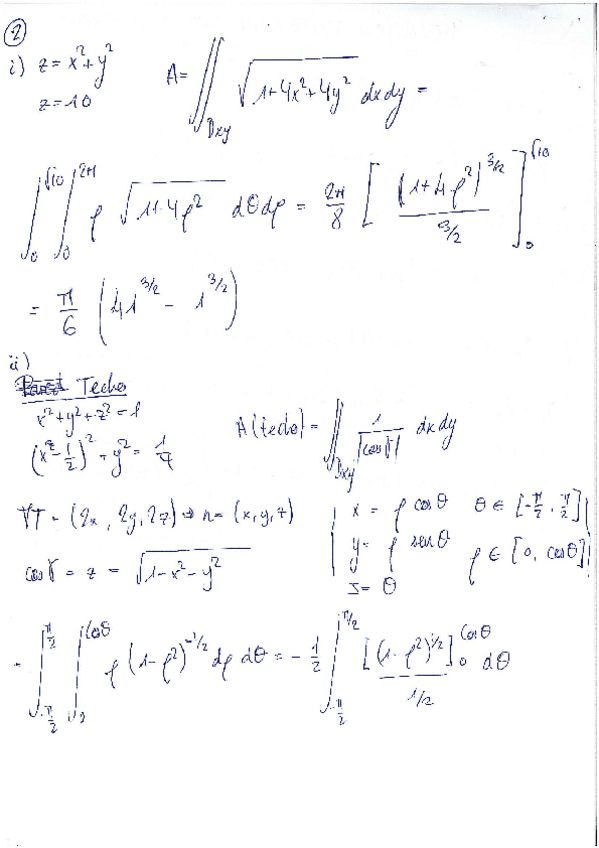 ②
i) z = x² + y²
z = 10
A = ∬_Dxy √(1+4x²+4y²) dxdy =
∫₀^√10 ∫₀^2π ρ √(1+4ρ²) dθdρ = 2π/8 [ (1+4ρ²)^3/2 / 3/2 ]₀^√10
= π/6 (41^3/2 - 1^3/2)
ii)
Techo
x² + y² + z² = 1
(x - 1/2)² + y² = 1/4
A(techo) = ∬_Dxy 1/|cos γ| dxdy
∇T = (2x, 2y, 2z) ⇒ n = (x, y, z)
cos γ = z = √(1-x²-y²)
x = ρ cos θ θ ∈ [-π/2, π/2]
y = ρ sen θ ρ ∈ [0, cos θ]
J = θ
- ∫_-π/2^π/2 ∫₀^cosθ ρ (1-ρ²)^-1/2 dρ dθ = - 1/2 ∫_-π/2^π/2 [(1-ρ²)^1/2]₀^cosθ / 1/2 dθ